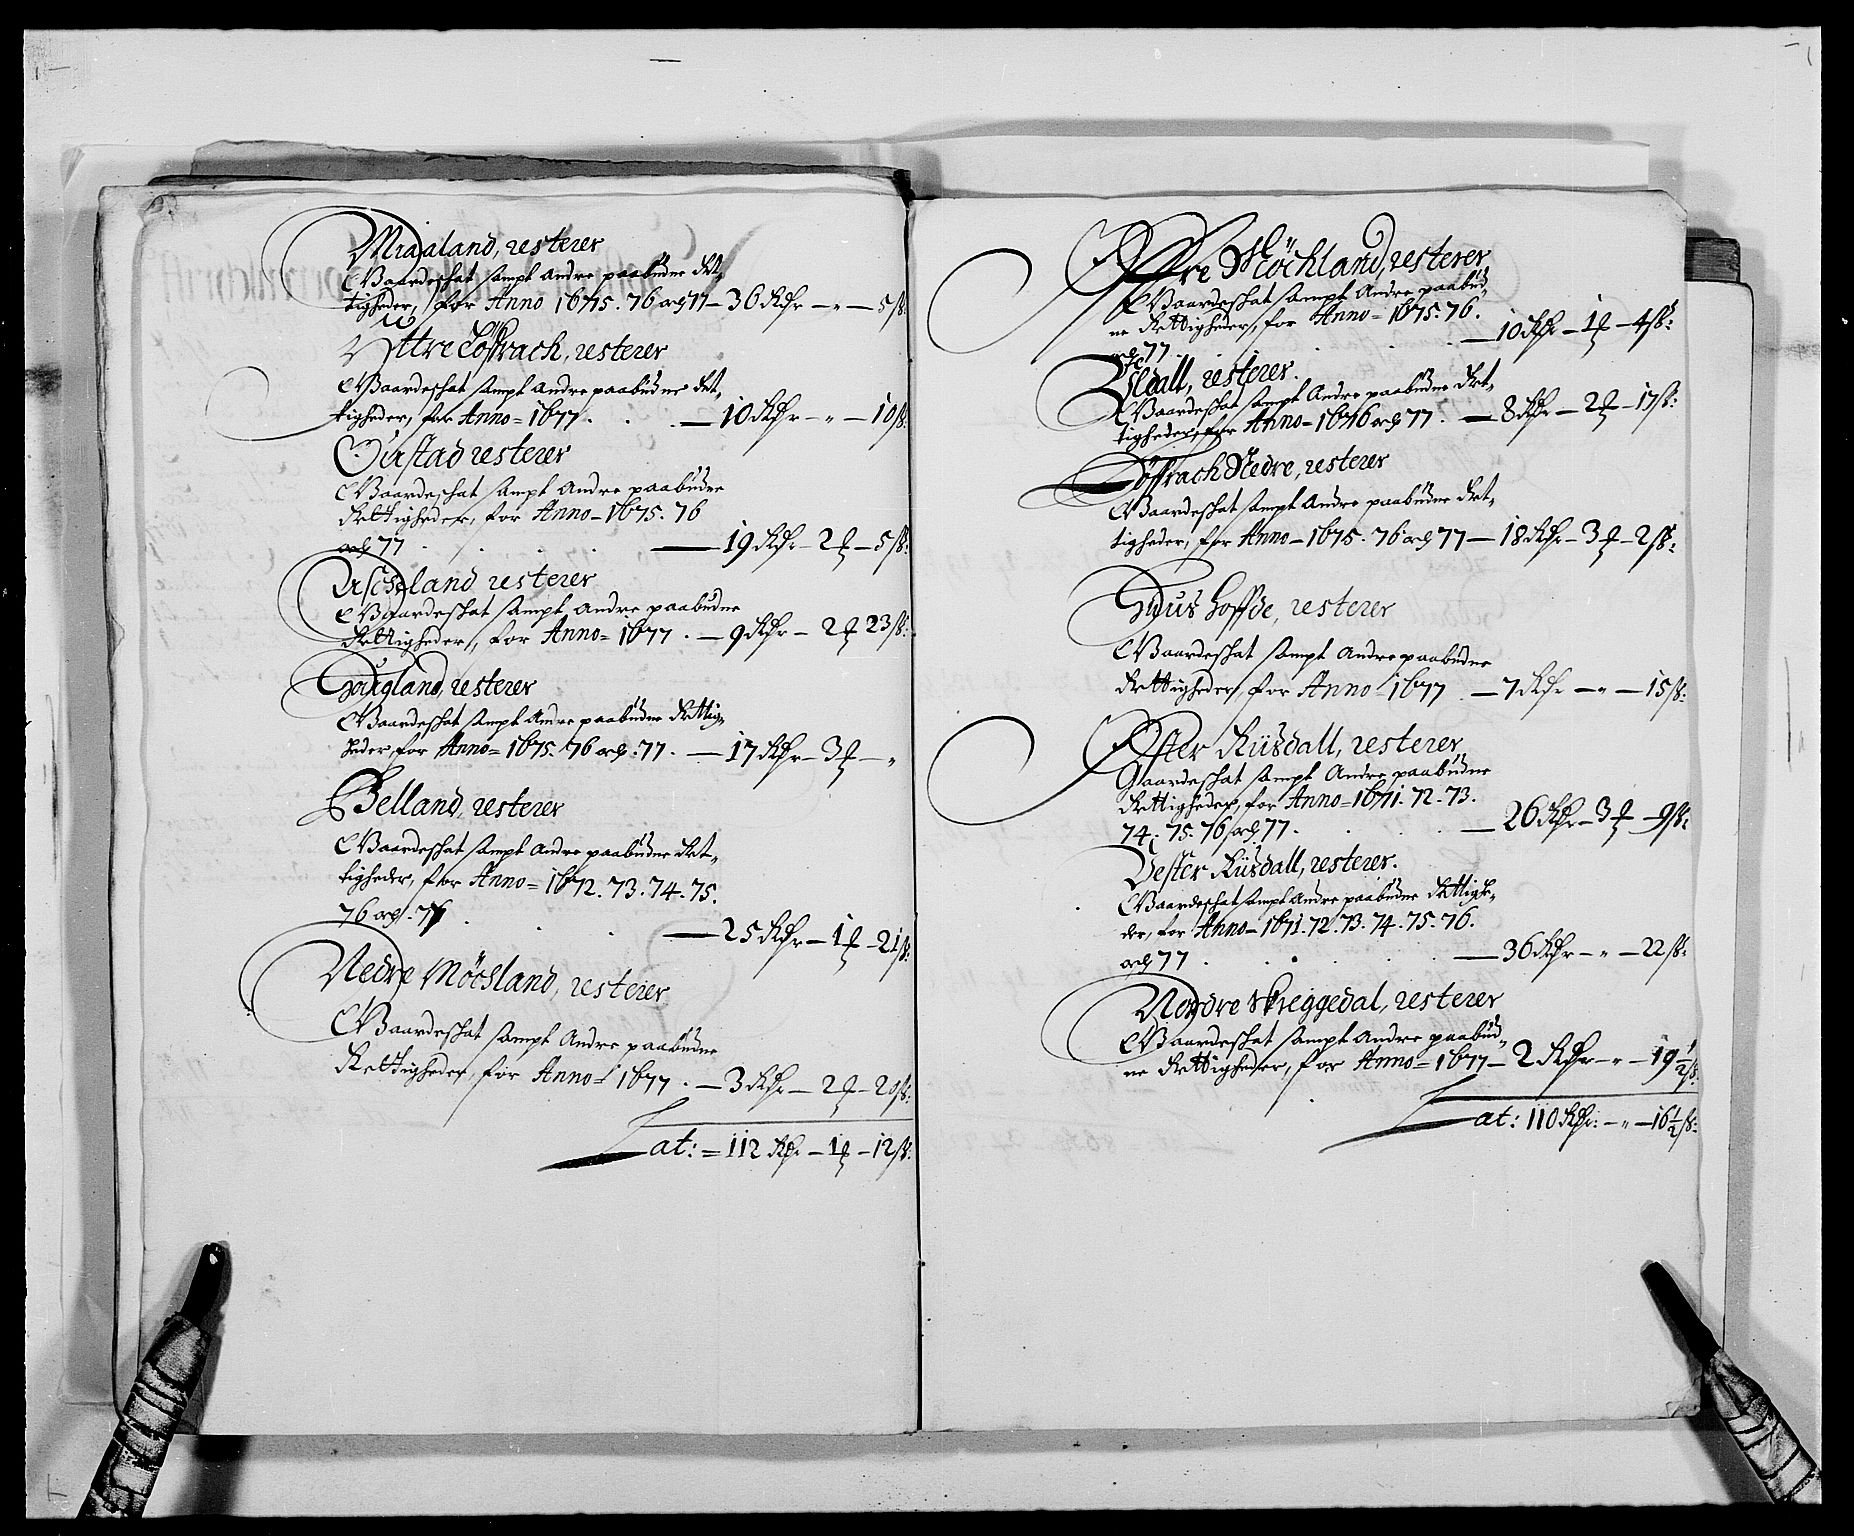 Miaaland, resterer
Gaardeshat sampt Andre paabudne Ret,
tigheder, for Anno 1675. 76 och 77 – 36 Rdr – " – 5 ß:
Ÿttre Løffrach, resterer
Gaardeshat sampt Andre paabudne Ret,
tigheder, for Anno = 1677 . . . — 10 Rdr – " – 10 ß:
Øirstad resterer
Gaardeshat sampt Andre paabudne
Rettigheder, for Anno – 1675. 76
och 77 . . . . — 19 Rdr – 2 ƒ – 5 ß:
Aschland resterer
Gaardeshat sampt Andre paabudne
Rettigheder, for Anno = 1677 . — 9 Rdr – 2 ƒ 23 ß:
Houfgland, resterer
Gaardeshat sampt Andre paabudne Rettig,
heder for Anno = 1675. 76 och . 77 . — 17 Rdr – 3 ƒ – "
Belland, resterer
Gaardeshat sampt Andre paabudne Ret,
tigheder, for Anno = 1672. 73. 74. 75.
76 och . 77 . . . — 25 Rdr – 1 ƒ – 21 ß:
Nedre Möchland, resterer
Gaardeshat sampt Andre paabudne
Rettigheder, for Anno = 1677 . — 3 Rdr – 2 ƒ – 20 ß:
Lat: = 112 Rdr – 1 ƒ – 12 ß:
Øffre Möchland, resterer
Gaardeshat sampt Andre paabud,
ne Rettigheder, for Anno = 1675. 76.
och 77 . . . . — 10 Rdr – 1 ƒ – 4 ß:
Eldall, resterer.
Gaardeshat sampt Andre paabudne Ret,
tigheder, for Anno – 1676 och 77 . — 8 Rdr – 2 ƒ – 17 ß:
Løffrach Nedre, resterer
Gaardeshat sampt Andre paabudne Ret,
tigheder, for Anno – 1675. 76 och 77 — 18 Rdr – 3 ƒ – 2 ß:
Huus Hoffde, resterer
Gaardeshat sampt Andre paabudne
Rettigheder, for Anno 1677 . — 7 Rdr – " – 15 ß:
Øster Riisdall, resterer
Gaardeshat sampt Andre paabudne
Rettigheder, for Anno = 1671. 72. 73.
74. 75. 76 och 77 . . . — 26 Rdr – 3 ƒ – 9 ß:
Vester Riisdall, resterer.
Gaardeshat sampt Andre paabudne Rettighe,
der, for Anno – 1671. 72. 73. 74. 75. 76.
och 77 . . . . — 36 Rdr – " – 22 ß:
Nordre Skreggedal, resterer
Gaardeshat sampt Andre paabud,
ne Rettigheder, for Anno = 1677 – 2 Rdr – " – 19 1/2 ß:
Lat: 110 Rdr: – " – 16 1/2 ß: